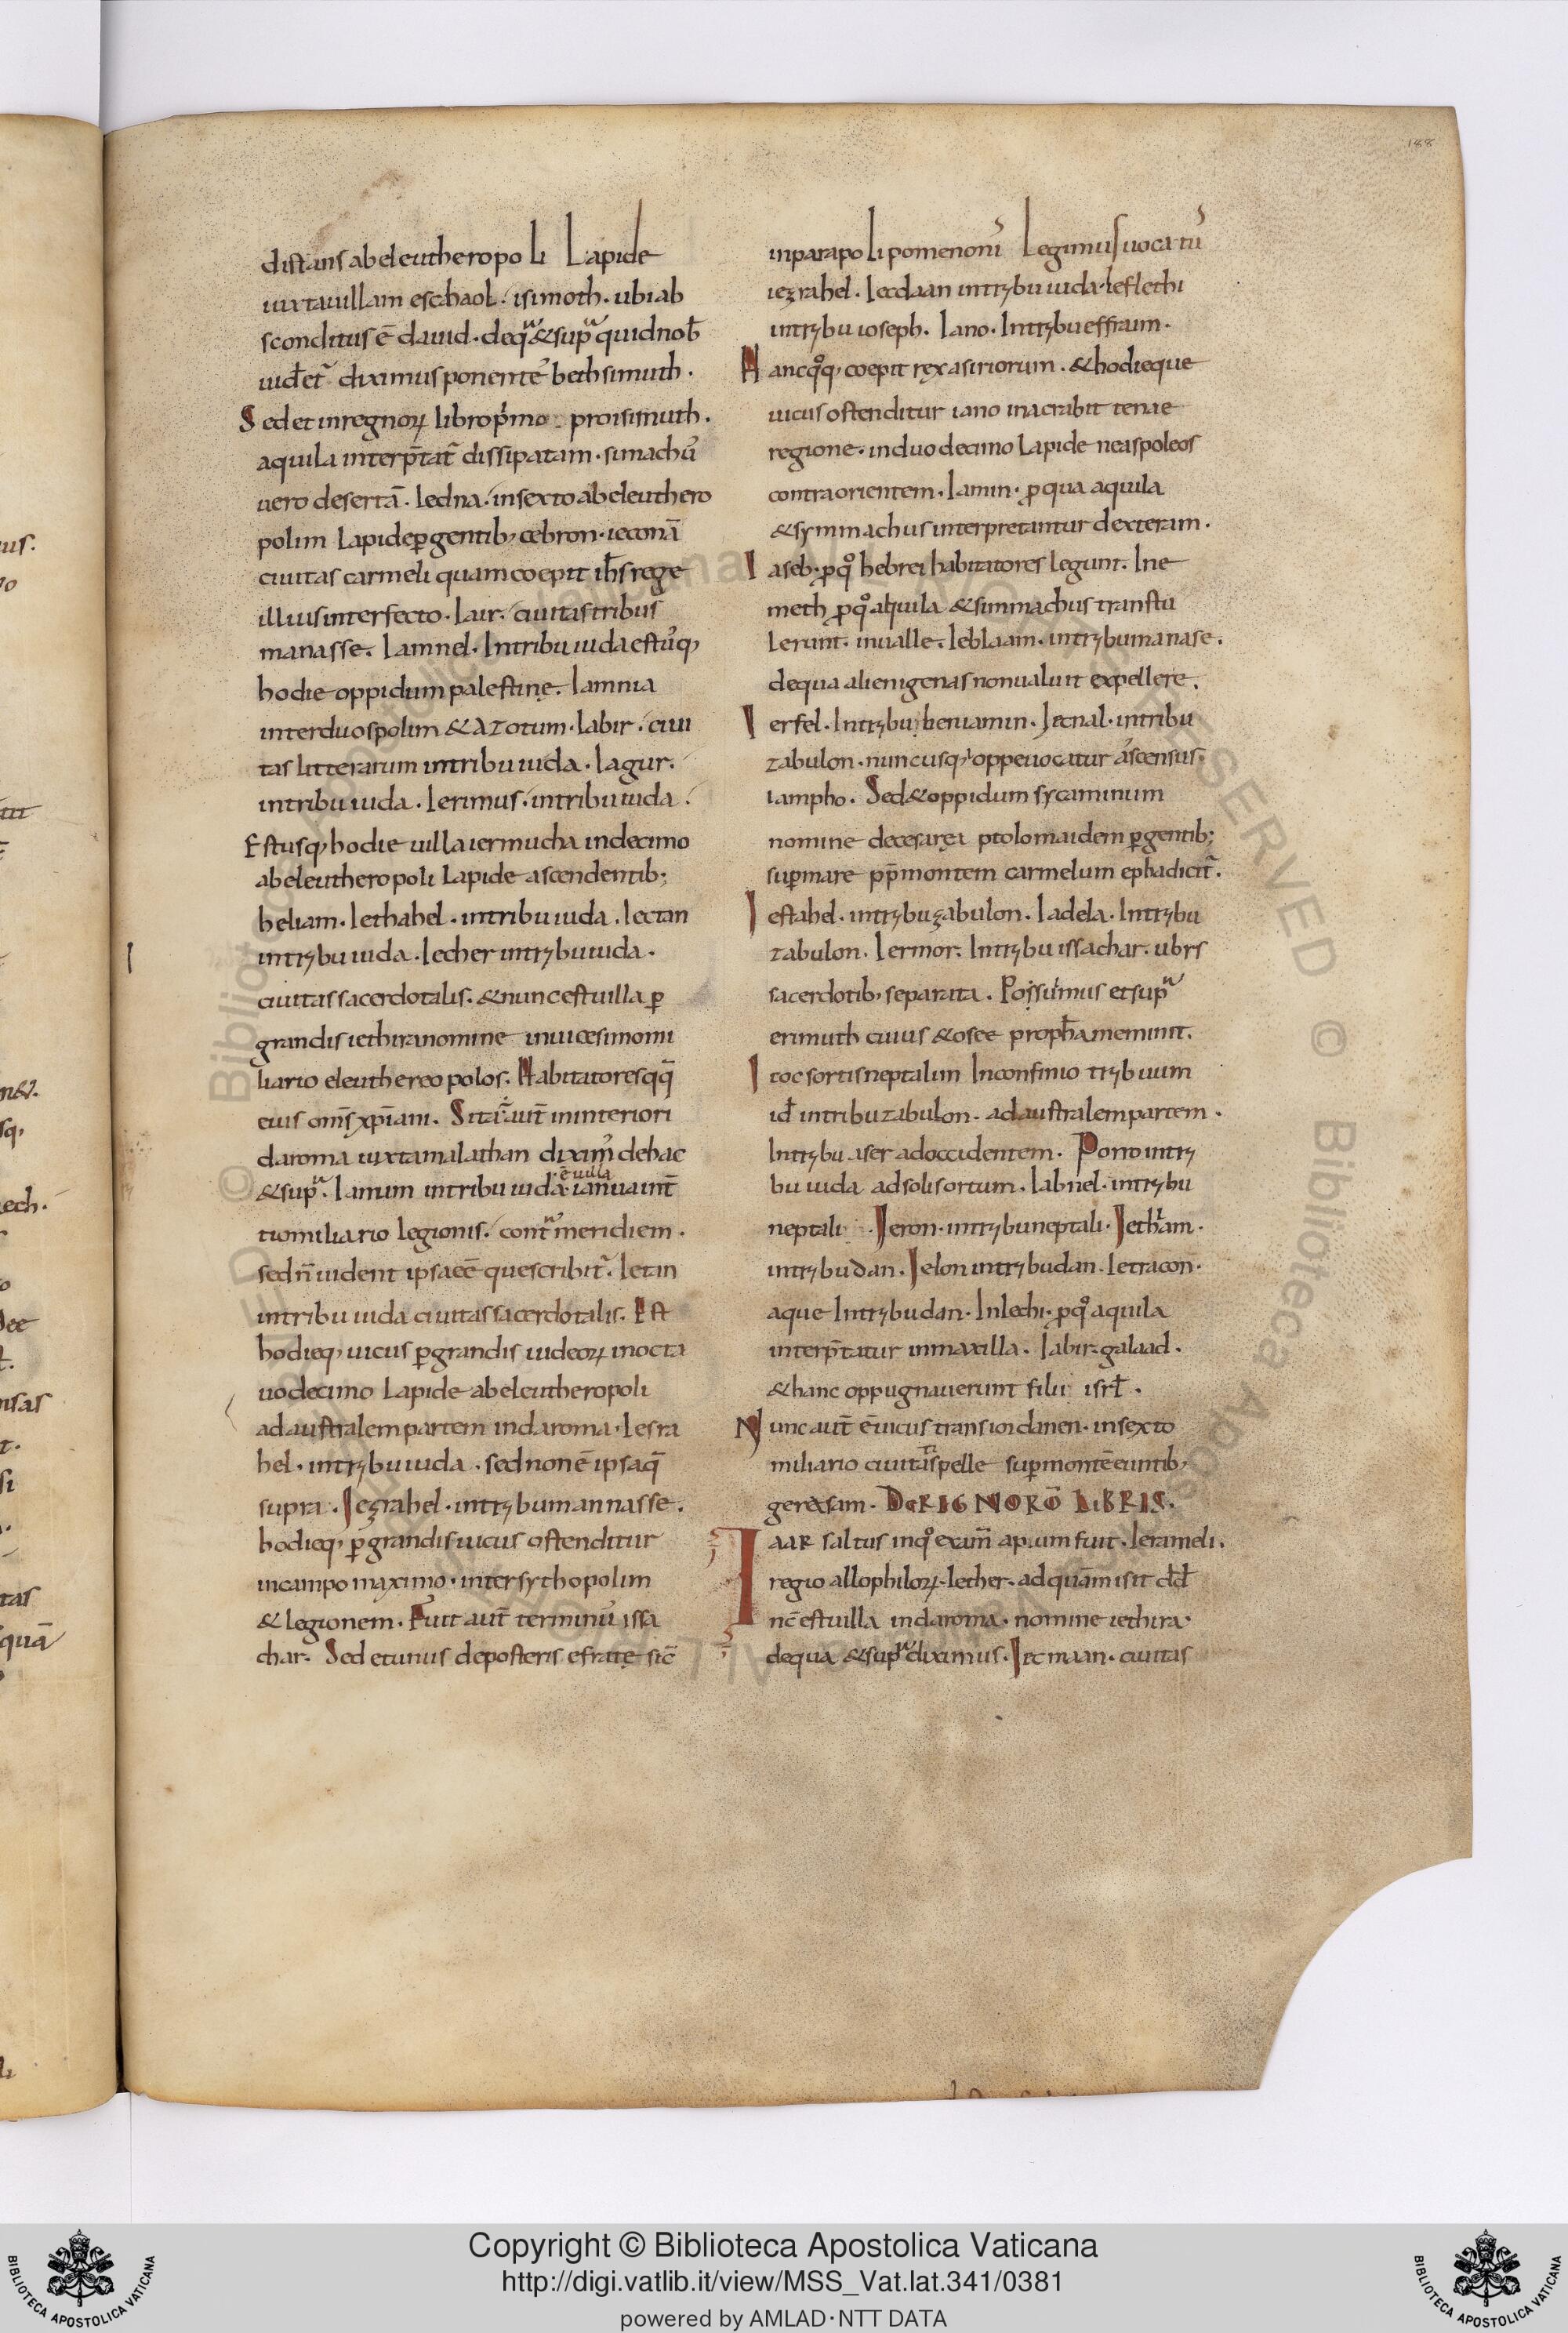 188
distans ab eleutheropoli Lapide
iuxta uillam eschaol. isimoth. ubi ab
sconditus ē dauid. de qͣ & supͣ quid nob̄
uid̄et᷑ diximus ponentē bethsimuth.
Sed et in regnoꝝ libro pͥmo pro isimuth.
aquila interp̄tat᷑ dissipatam. simachū
uero desertā. Iedna. in sexto ab eleuthero
polim Lapide ꝑgentib; cebron. ieconā
ciuitas carmeli quam coepit ih̄s rege
illius interfecto. Iair. ciuitas tribus
manasse. Iamnel. In tribu iuda est usq;
hodie oppidum palestinę. Iamnia
inter duospolim & azotum. Iabir. ciui
tas litterarum in tribu iuda. Iagur.
in tribu iuda. Ierimus. in tribu iuda.
Est usq; hodie uilla iermucha in decimo
ab eleutheropoli Lapide ascendentib;
heliam. Iethahel. in tribu iuda. Iectan
in tribu iuda. Iecher in tribu iuda.
ciuitas sacerdotalis. & nunc est uilla ꝑ
grandis iethira nomine in uicesimo mi
liario eleuthereopolos. Habitatores qq̄
eius om̄s xp̄iani. Sita aut̄ in interiori
daroma iuxta malathan dixim᷒ de hac
ē uilla
& supͣ. Ianum in tribu iuda. ianua in t̄
tio miliario legionis. contͣ meridiem.
sed n̄ uident ipsa eē que scribit᷑. Ietan
in tribu iuda ciuitas sacerdotalis. Est
hodieq; uicus ꝑgrandis iudeoꝝ in octa
uodecimo Lapide ab eleutheropoli
ad australem partem in daroma. Iesra
hel. in tribu iuda. sed non ē ipsa q̄
supra. Iezrahel. in tribu mannasse.
hodieq; ꝑgrandis uicus ostenditur
in campo maximo. inter sythopolim
& legionem. Fuit aut̄ terminū issa
char. Sed et unus de posteris efratę sic̄
in parapolipomenonī Legimus uocatū
iezrahel. Iecdaan in tribu iuda. Ieflethi
in tribu ioseph. Iano. In tribu effraim.
Hanc qͦq; coepit rex asiriorum. & hodieque
uicus ostenditur iano in acrabittenae
regione. in duodecimo Lapide neaspoleos
contra orientem. Iamin. ꝓ qua aquila
& symmachus interpretantur dexteram.
Iaseb. ꝓ qͦ hebrei habitatores legunt. Ine
meth ꝓ qͦ aquila & simmachus transtu
lerunt. in ualle. Ieblaam. in tribu manase.
de qua alienigenas non ualuit expellere.
Ierfel. In tribu beniamin. Iecnal. in tribu
zabulon. nunc usq; oppe uocatur ascensus
iampho. Sed & oppidum sycaminum
nomine de cesarea ptolomaidem ꝑgentib;
suꝑ mare pp̄ montem carmelum epha dicit᷑.
Iestahel. in tribu zabulon. Iadela. In tribu
zabulon. Iermor. In tribu issachar. ubrs
sacerdotib; separata. Possumus et supͣ
erimuth cuius & osee proph̄a meminit.
Itoc sortis neptalim In confinio tribuum
id̄ in tribu zabulon. ad australem partem.
In tribu aser ad occidentem. Porro in tri
bu iuda ad solis ortum. Iabnel. in tribu
neptali. Ieron. in tribu neptali. Ietham.
in tribu dan. Ielon in tribu dan. Ietracon.
aque In tribu dan. In lechi. ꝓ qͦ aquila
interp̄tatur in maxilla. Iabir galaad.
& hanc oppugnauerunt filii isrl̄.
Nunc aut̄ ē uicus trans iordanen. in sexto
miliario ciuitatis pelle suꝑ montē euntib;
gerasam. DE RIGNORŌ LIBRIS.
IAAR saltus in qͦ exam̄ apium fuit. Ierameli.
regio allophiloꝝ. Iether. ad quam isit dd̄
nc̄ est uilla in daroma. nomine iethira.
de qua & supͣ diximus. Iecmaan. ciuitas
Copyright © Biblioteca Apostolica Vaticana
http://digi.vatlib.it/view/MSS_Vat.lat.341/0381
powered by AMLAD·NTT DATA